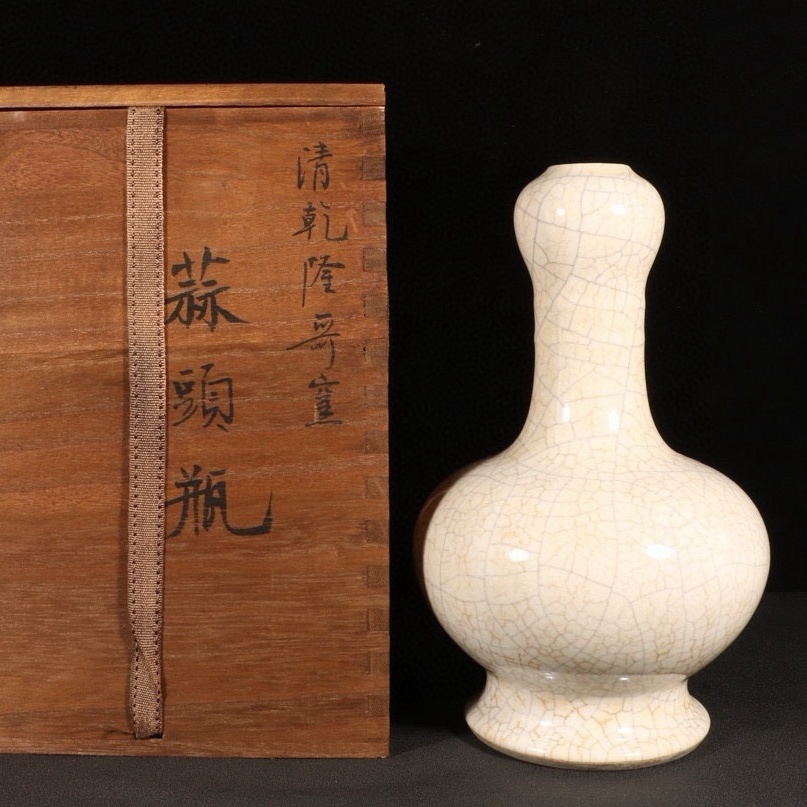 清乾隆哥窑
蒜頭瓶